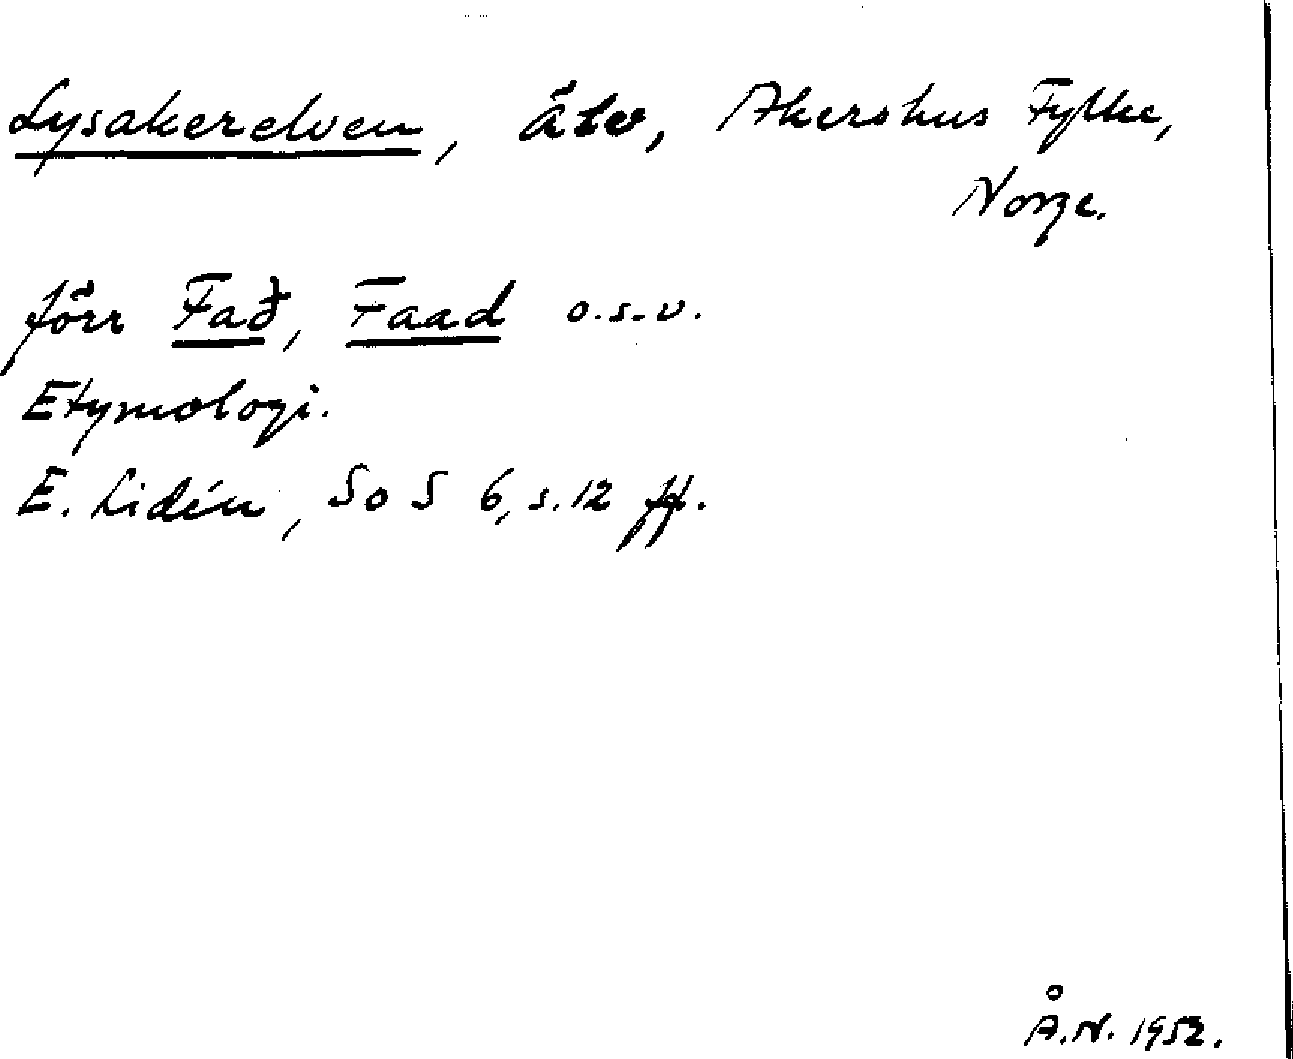 Lysakerelven, älv, Akershus Fylke,
Norge.
förr Fað, Faad o.s.v.
Etymologi.
E. Lidén, SoS 6, s. 12 ff.
Å.N. 1952.